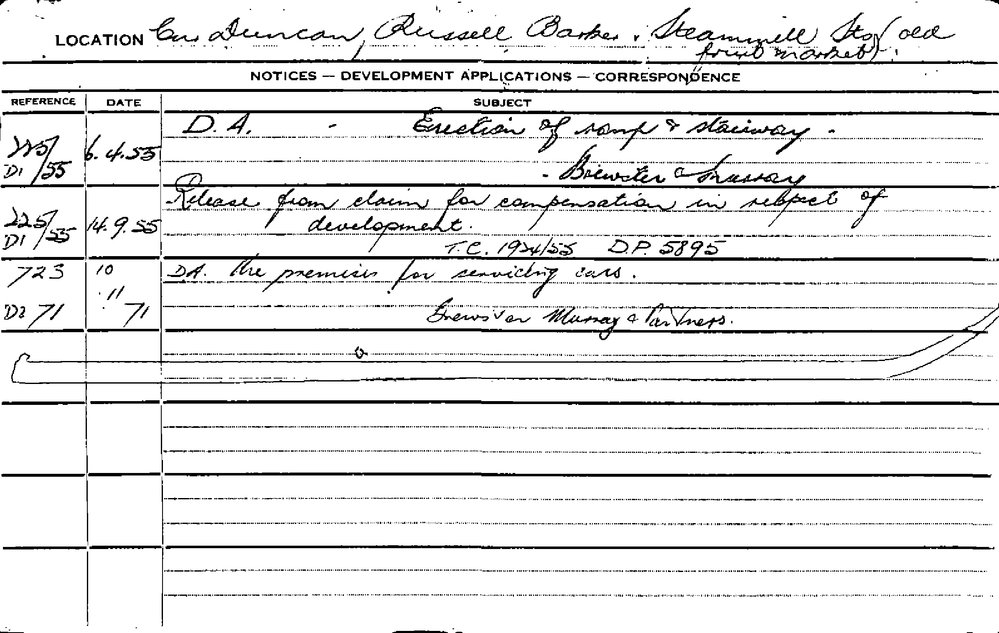 LOCATION Cnr Duncan, Russell Barker & Steammill Sts (old
fruit market).
NOTICES — DEVELOPMENT APPLICATIONS — CORRESPONDENCE
REFERENCE DATE SUBJECT
D.A. - Erection of ramp & stairway.
225/ 6.4.55
D1/55 - Brewster & Murray
Release from claim for compensation in respect of
225/ 14.9.55 development.
D1/55 T.C. 1924/55 D.P. 5895
723 10 DA. the premises for servicing cars.
.11
D2 71 /71 Brewster Murray & Partners.